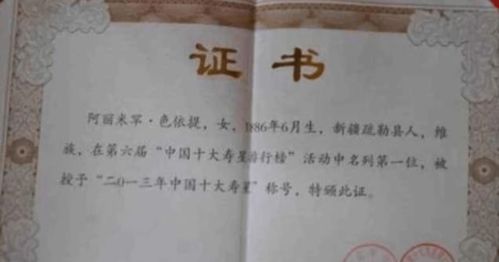 证书
阿丽米罕·色依提，女，1886年6月生，新疆疏勒县人，维
族，在第六届“中国十大寿星排行榜”活动中名列第一位，被
授予“二〇一三年中国十大寿星”称号，特颁此证。